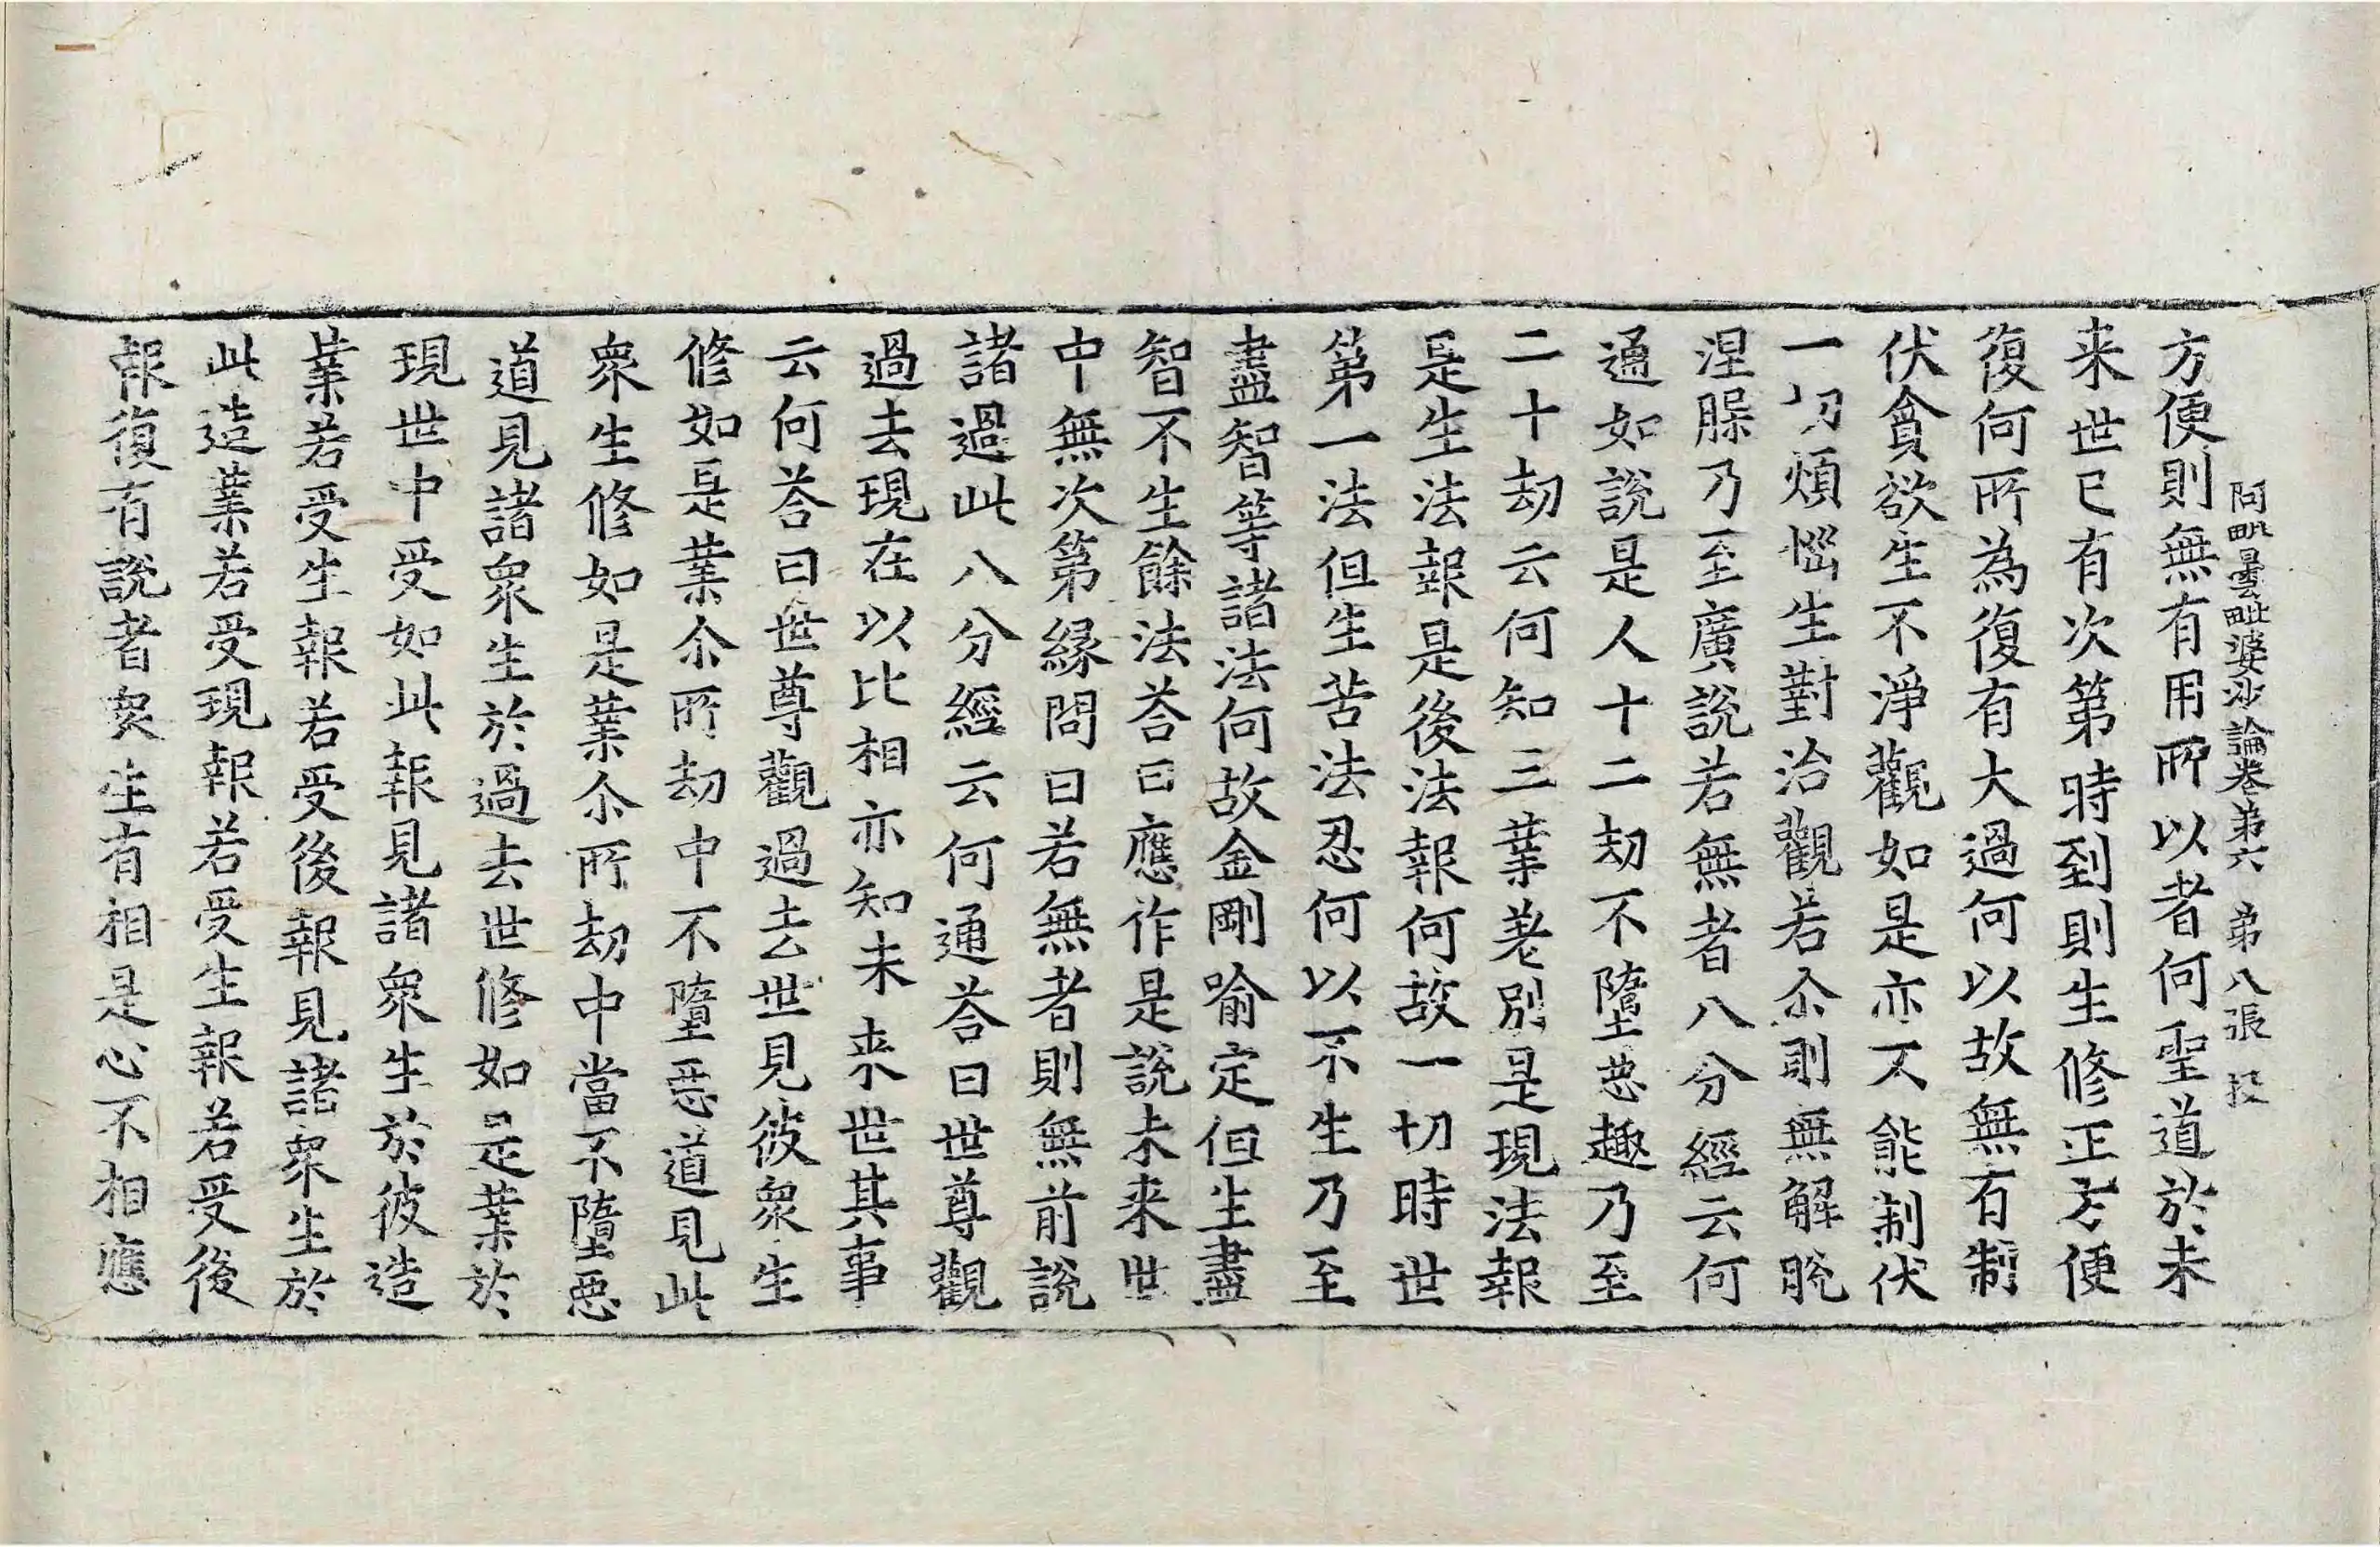 阿毗曇毗婆沙論卷第六 第八張 投
方便則無有用所以者何聖道於未
来世已有次第時到則生修正方便
復何所為復有大過何以故無有制
伏貪欲生不淨觀如是亦不能制伏
一切煩惱生對治觀若尒則無解脫
涅槃乃至廣說若無者八分經云何
通如說是人十二劫不墮惡趣乃至
二十劫云何知三業差別是現法報
是生法報是後法報何故一切時世
第一法但生苦法忍何以不生乃至
盡智等諸法何故金剛喻定但生盡
智不生餘法荅曰應作是說未来世
中無次第緣問曰若無者則無前說
諸過此八分經云何通荅曰世尊觀
過去現在以比相亦知未来世其事
云何荅曰世尊觀過去世見彼衆生
修如是業尒所劫中不墮惡道見此
衆生修如是業尒所劫中當不墮惡
道見諸衆生於過去世修如是業於
現世中受如此報見諸衆生於彼造
業若受生報若受後報見諸衆生於
此造業若受現報若受生報若受後
報復有說者衆生有相是心不相應